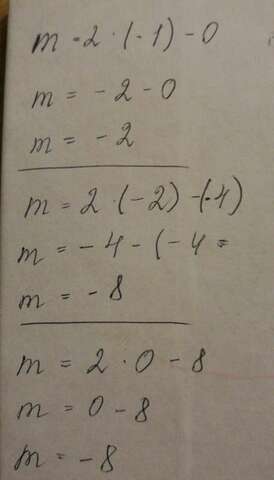 m = 2 · (-1) - 0
m = -2 - 0
m = -2
m = 2 · (-2) -(-4)
m = -4 - (-4 =
m = -8
m = 2 · 0 - 8
m = 0 - 8
m = -8